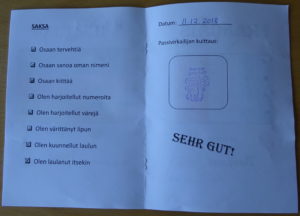 SAKSA
Osaan tervehtiä
Osaan sanoa oman nimeni
Osaan kiittää
Olen harjoitellut numeroita
Olen harjoitellut värejä
Olen värittänyt lipun
Olen kuunnellut laulun
Olen laulanut itsekin
Datum: 11.12.2018
Passivirkailijan kuittaus:
SEHR GUT!